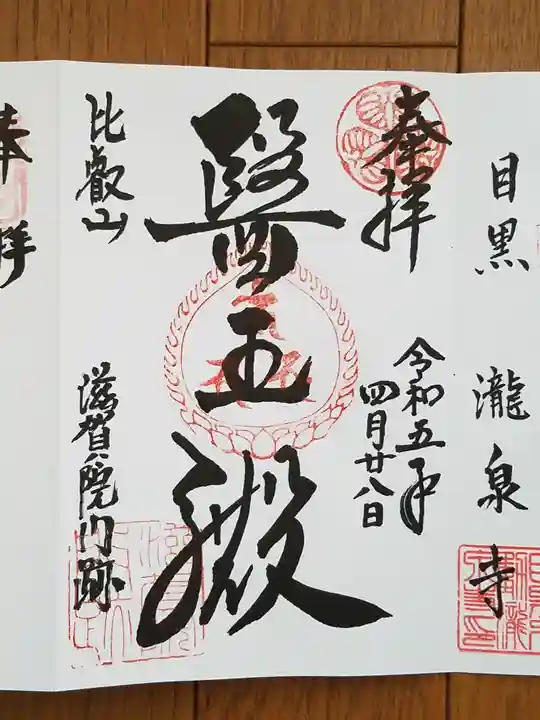 目黒 瀧泉寺
奉拝
令和五年
四月廿八日
醫王殿
比叡山
滋賀院門跡
奉拝